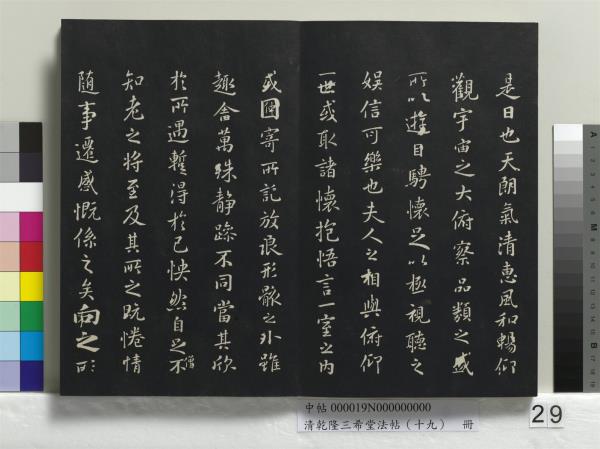 是日也天朗氣清惠風和暢仰
觀宇宙之大俯察品類之盛
所以遊目騁懷足以極視聽之
娛信可樂也夫人之相與俯仰
一世或取諸懷抱悟言一室之內
或因寄所託放浪形骸之外雖
趣舍萬殊靜躁不同當其欣
於所遇暫得於己怏然自足不
僧
知老之將至及其所之既惓情
隨事遷感慨係之矣向之所
中帖 000019N000000000
清乾隆三希堂法帖（十九） 冊
29